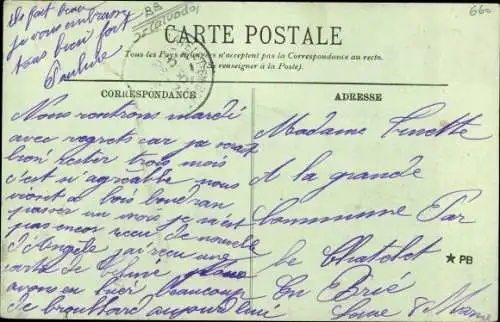 BB
d calvados
660
CARTE POSTALE
Tous les Pays étrangers n'acceptent pas la Correspondance au recto.
(Se renseigner à la Poste).
CORRESPONDANCE
Nous rentrons mardi
avec regrets car je serai
bien rester trois mois
c'est si agréable nous
viront a bois boudran
passer un mois je n'ai
pas encor recu de nouvelle
d'Angèle j'ai reçu une
carte de nous
avons eu hier beaucoup
de brouillard aujourd'hui
il fait beau
je vous embrasse
tous bien fort
Pauline
ADRESSE
Madame
A la grande
Commune Par
le Chatelet
En Brie
Seine & Marne
★ PB